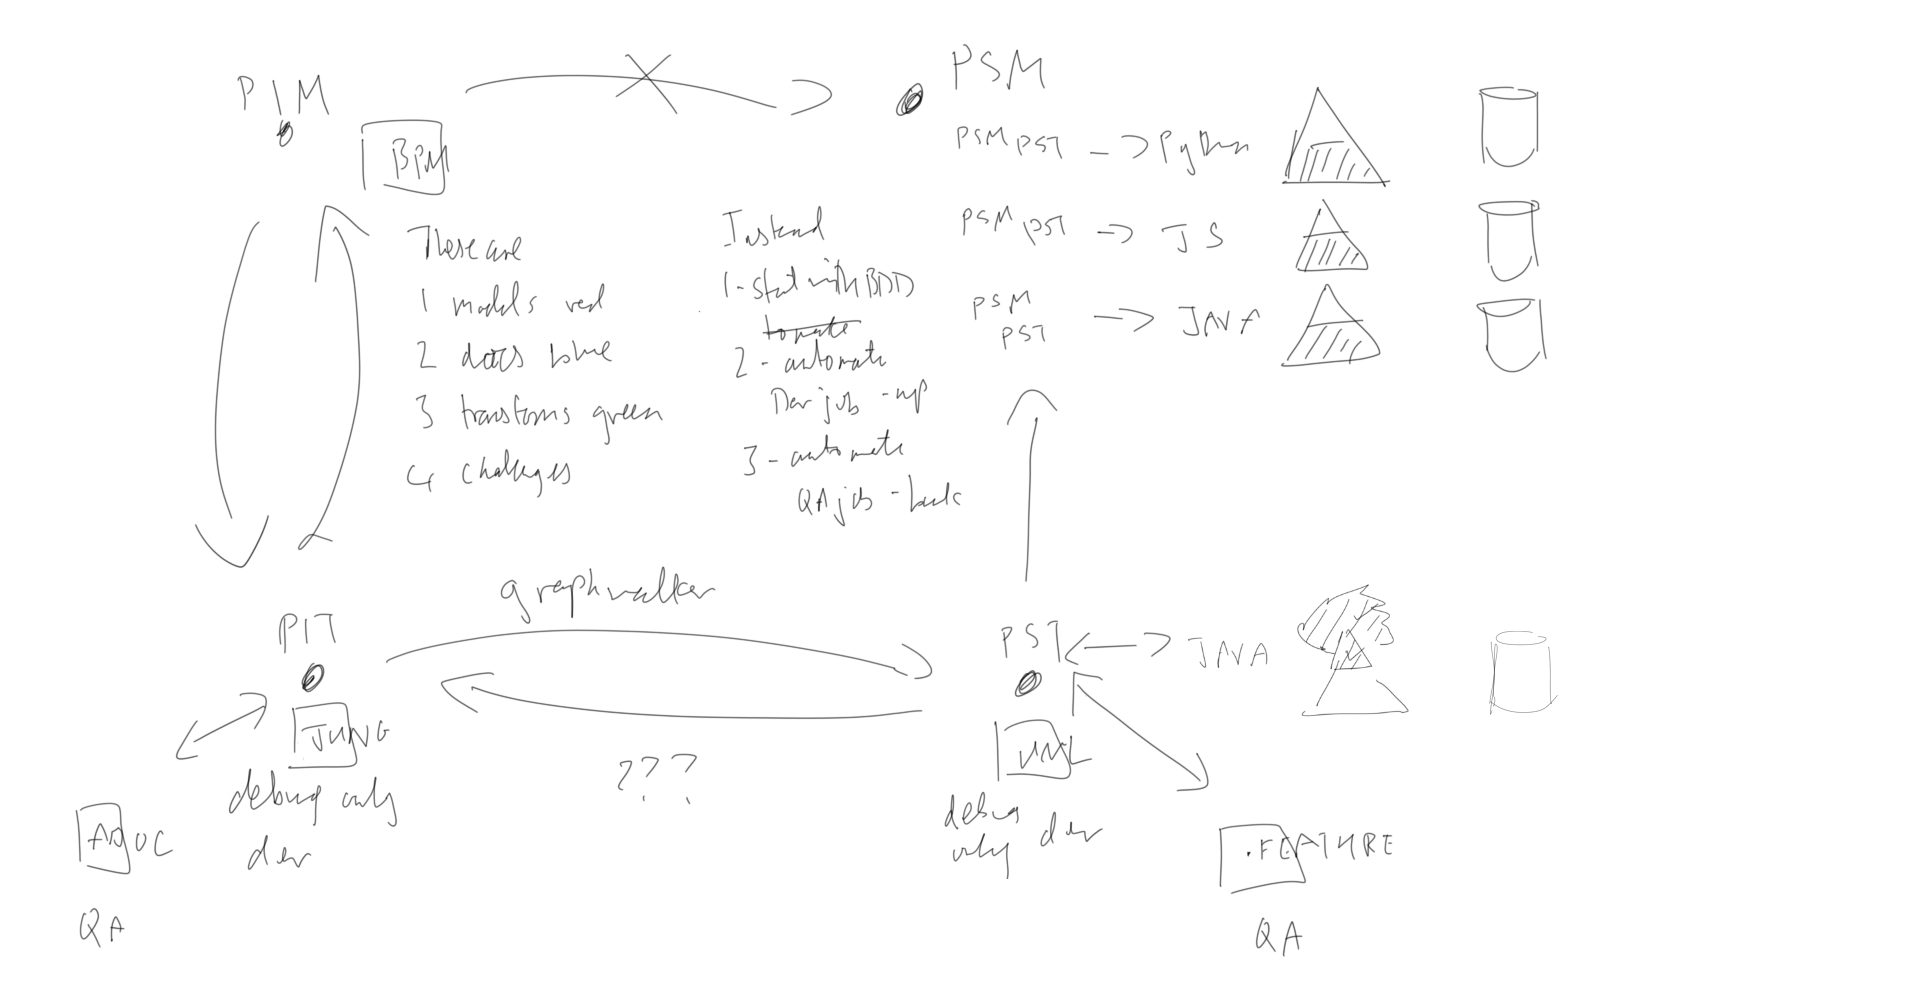 PIM
BPM
PSM
PSM PST -> Python
PSM PST -> JS
PSM
PST -> JAVA
These are
1 models red
2 docs blue
3 transforms green
4 challenges
Instead
1- start with BDD
2- automate
Dev job -
3- automate
QA job - back
graphwalker
PIT
JUNG
debug only
dev
ADOC
QA
???
PST
JAVA
UML
debug
only dev
.FEATURE
QA